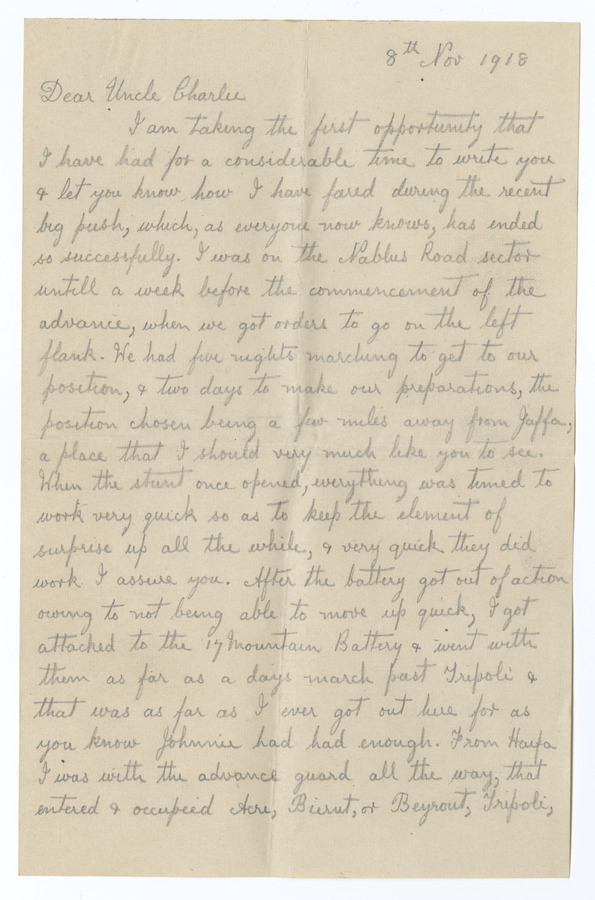 8th Nov 1918
Dear Uncle Charlie
I am taking the first opportunity that
I have had for a considerable time to write you
& let you know how I have fared during the recent
big push, which, as everyone now knows, has ended
so successfully. I was on the Nablus Road sector
untill a week before the commencement of the
advance, when we got orders to go on the left
flank. We had five nights marching to get to our
position, & two days to make our preparations, the
position chosen being a few miles away from Jaffa,
a place that I should very much like you to see.
When the stunt once opened, everything was timed to
work very quick so as to keep the element of
surprise up all the while, & very quick they did
work I assure you. After the battery got out of action
owing to not being able to move up quick, I got
attached to the 17 Mountain Battery & went with
them as far as a days march past Tripoli &
that was as far as I ever got out here for as
you know Johnnie had had enough. From Haifa
I was with the advance guard all the way, that
entered & occupied Acre, Bierut, or Beyrout, Tripoli,